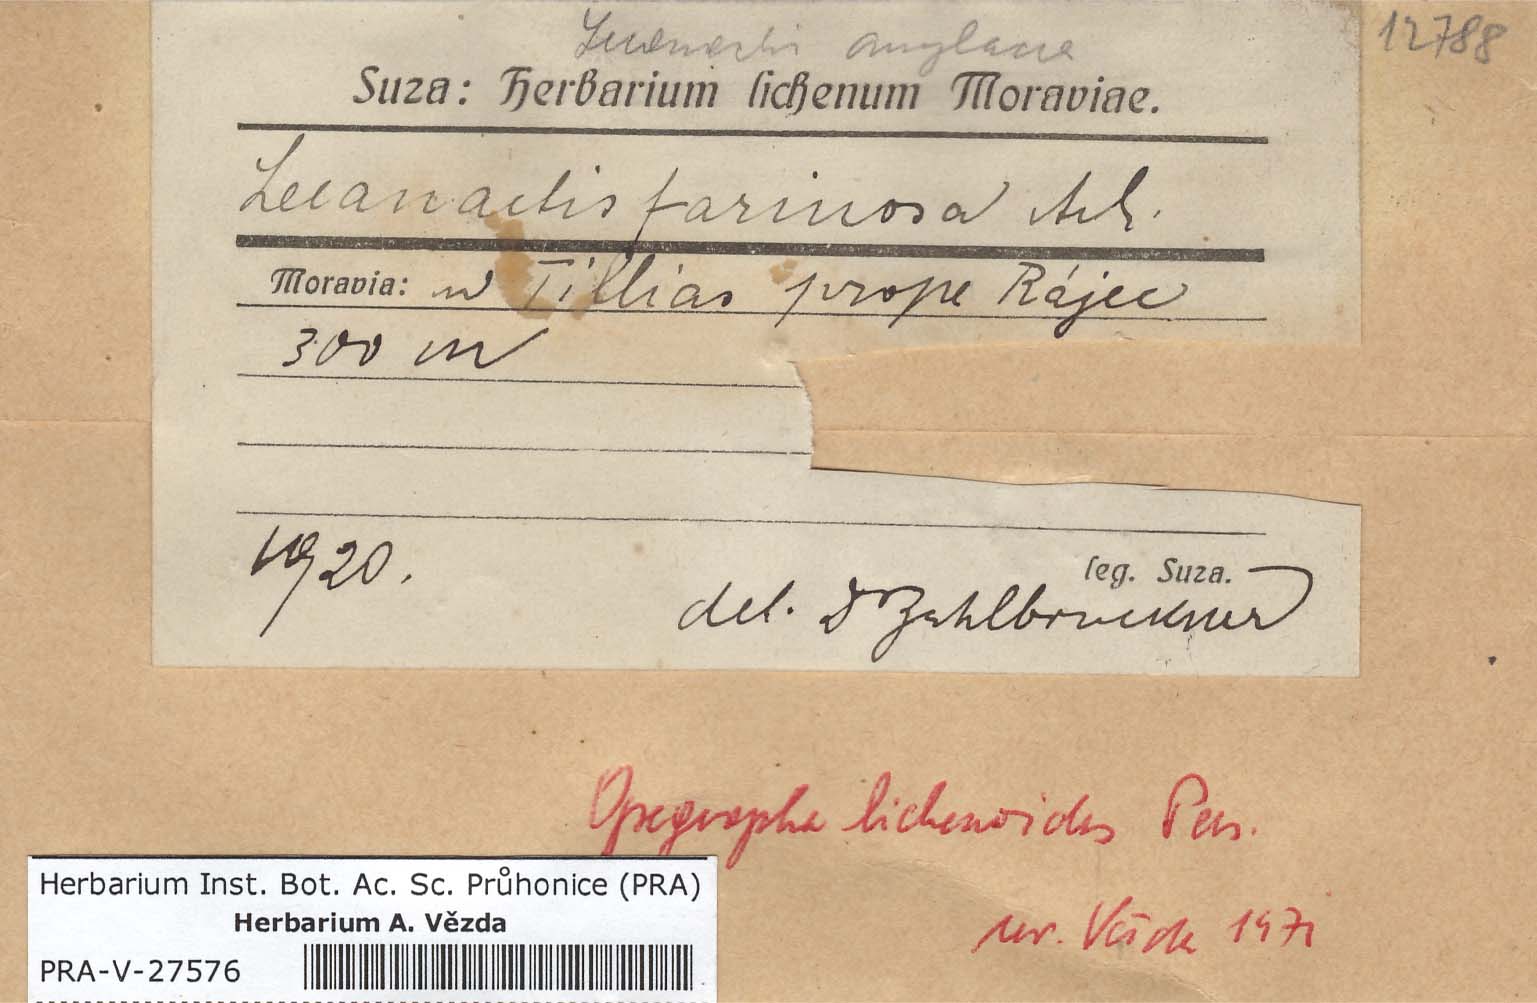 12788
Suza: Herbarium lichenum Moraviae.
Lecanactis farinosa
Moravia: Tillias prope Rájec
300 m
1920.
leg. Suza.
det. Dr Zahlbruckner
Opegrapha lichenoides Pers.
rev. Vězda 1971
Herbarium Inst. Bot. Ac. Sc. Průhonice (PRA)
Herbarium A. Vězda
PRA-V-27576